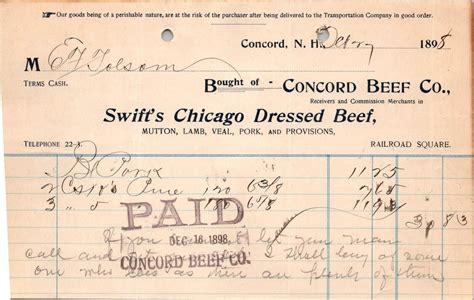 Our goods being of a perishable nature, are at the risk of the purchaser after being delivered to the Transportation Company in good order.
Concord, N. H. 1898
M F Folsom
TERMS CASH.
Bought of - CONCORD BEEF CO.,
Receivers and Commission Merchants in
Swift's Chicago Dressed Beef,
MUTTON, LAMB, VEAL, PORK, AND PROVISIONS,
TELEPHONE 22-3. RAILROAD SQUARE.
B Pork 1125
2 Pure 120 6 3/8 765
3 " 5 1193
3083
PAID
DEC 16 1898
CONCORD BEEF CO.
If you let your man
call and I shall buy of some
one who does as there are plenty of them